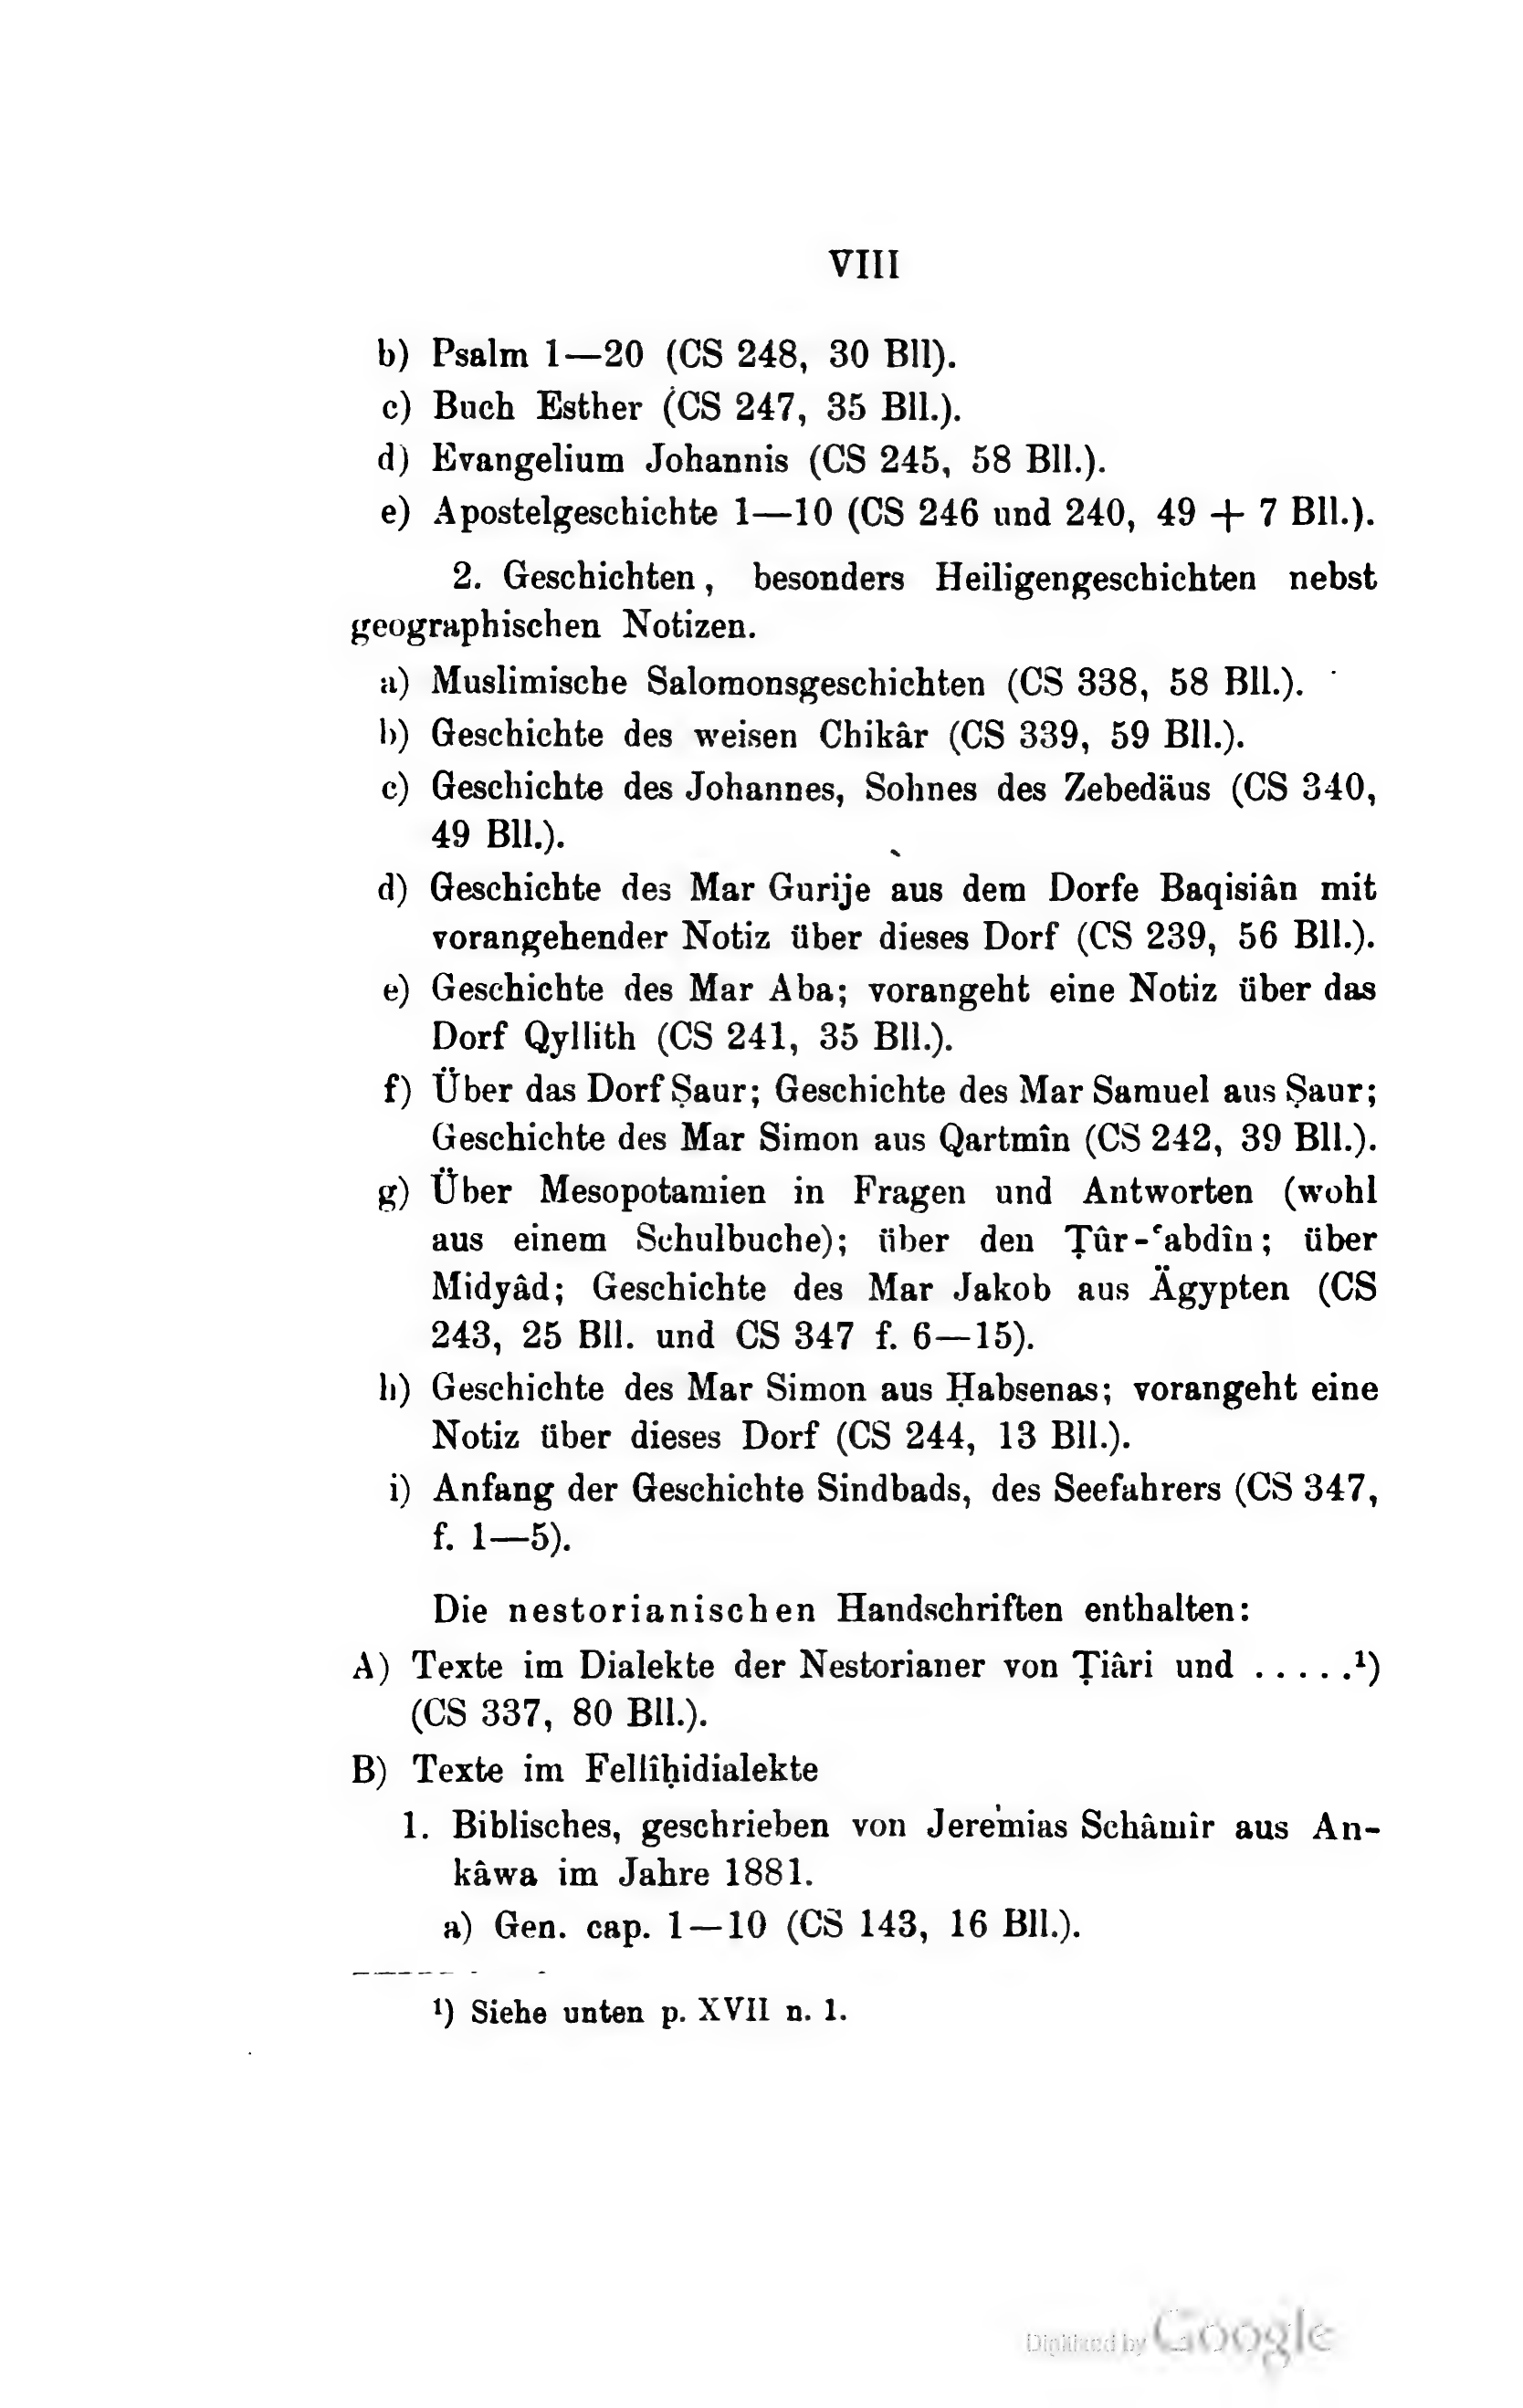 VIII
b) Psalm 1—20 (CS 248, 30 Bll).
c) Buch Esther (CS 247, 35 Bll.).
d) Evangelium Johannis (CS 245, 58 Bll.).
e) Apostelgeschichte 1—10 (CS 246 und 240, 49 + 7 Bll.).
2. Geschichten, besonders Heiligengeschichten nebst
geographischen Notizen.
a) Muslimische Salomonsgeschichten (CS 338, 58 Bll.).
b) Geschichte des weisen Chikâr (CS 339, 59 Bll.).
c) Geschichte des Johannes, Sohnes des Zebedäus (CS 340,
49 Bll.).
d) Geschichte des Mar Gurije aus dem Dorfe Baqisiân mit
vorangehender Notiz über dieses Dorf (CS 239, 56 Bll.).
e) Geschichte des Mar Aba; vorangeht eine Notiz über das
Dorf Qyllith (CS 241, 35 Bll.).
f) Über das Dorf Ṣaur; Geschichte des Mar Samuel aus Ṣaur;
Geschichte des Mar Simon aus Qartmîn (CS 242, 39 Bll.).
g) Über Mesopotamien in Fragen und Antworten (wohl
aus einem Schulbuche); über den Ṭûr-ʿabdîn; über
Midyâd; Geschichte des Mar Jakob aus Ägypten (CS
243, 25 Bll. und CS 347 f. 6—15).
h) Geschichte des Mar Simon aus Ḥabsenas; vorangeht eine
Notiz über dieses Dorf (CS 244, 13 Bll.).
i) Anfang der Geschichte Sindbads, des Seefahrers (CS 347,
f. 1—5).
Die nestorianischen Handschriften enthalten:
A) Texte im Dialekte der Nestorianer von Ṭiâri und . . . . .¹)
(CS 337, 80 Bll.).
B) Texte im Fellîḥidialekte
1. Biblisches, geschrieben von Jeremias Schâmîr aus An-
kâwa im Jahre 1881.
a) Gen. cap. 1—10 (CS 143, 16 Bll.).
¹) Siehe unten p. XVII n. 1.
Digitized by Google